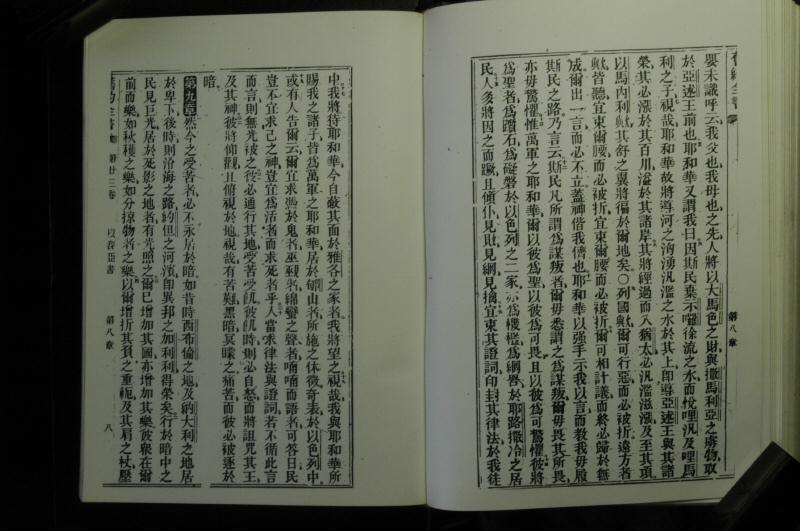 舊約全書
嬰未識呼云我父也我母也之先人將以大馬色之財與撒馬利亞之虜物取
於亞述王前也耶和華又謂我曰因斯民棄示囉徐流之水而悅哩汎及哩馬
利之子視哉耶和華故將導河之洶湧汎濫之水於其上卽導亞述王與其諸
榮其必漲於其百川溢於其諸岸其將經過而入猶太必汎濫滋漲及至其項
以馬內利歟其舒之翼將徧於爾地矣〇列國歟爾可行惡而必被折遠方者
歟皆聽宜束爾腰而必被折宜束爾腰而必被折爾可相計議而終必歸於無
成爾出一言而必不立蓋神偕我儕也耶和華以强手示我以言而敎我毋履
斯民之路乃言云斯民凡所謂爲謀叛者爾毋悉謂之爲謀叛爾毋畏其所畏
亦毋驚懼惟萬軍之耶和華爾以彼爲聖以彼爲可畏且以彼爲可驚懼彼將
爲聖者爲躓石爲礙磐於以色列之二家亦爲機檻爲網罟於耶路撒冷之居
民人多將因之而蹶且傾仆見取見網見擒宜束其證詞印封其律法於我徒
第八章
中我將待耶和華今自蔽其面於雅各之家者我將望之視哉我與耶和華所
賜我之諸子皆爲萬軍之耶和華居於郇山者所施之休徵奇表於以色列中
或有人告爾云爾宜求憑於鬼者巫覡者綿蠻之聲者喃喃而語者可答曰民
豈不宜求己之神豈宜爲活者而求死者乎人當求律法與證詞若不循此言
而言則無光被之彼必通行其地受苦受飢彼飢時則必自怒而將詛咒其王
及其神彼將仰觀且俯視於地視哉有苦難黑暗冥曚之痛苦而彼必被逐於
暗
第九章然今之受苦者必不永居於暗如昔時西布倫之地及納大利之地居
於卑下後時則沿海之路約但之河濱卽異邦之加利利得榮矣行於暗中之
民見巨光居於死影之地者有光照之爾已增加其國亦增加其樂彼衆在爾
前而樂如秋穫之樂如分掠物者之樂以爾增折其負之重軛及其肩之杖壓
舊約全書 第廿三卷 以賽亞書 第八章 八